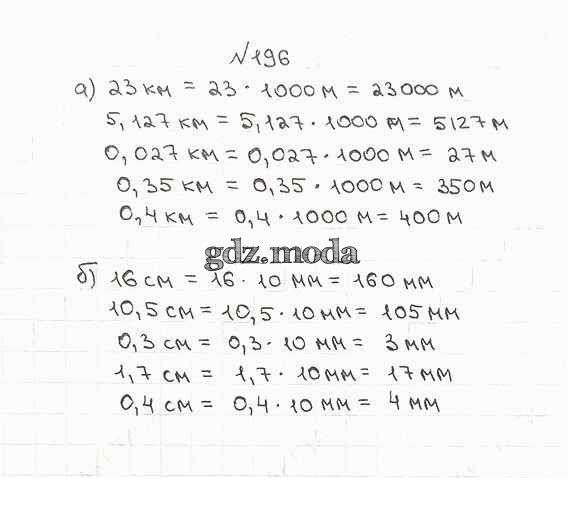 №196
а) 23 км = 23 · 1000 м = 23000 м
5,127 км = 5,127 · 1000 м = 5127 м
0,027 км = 0,027 · 1000 м = 27 м
0,35 км = 0,35 · 1000 м = 350 м
0,4 км = 0,4 · 1000 м = 400 м
gdz.moda
б) 16 см = 16 · 10 мм = 160 мм
10,5 см = 10,5 · 10 мм = 105 мм
0,3 см = 0,3 · 10 мм = 3 мм
1,7 см = 1,7 · 10 мм = 17 мм
0,4 см = 0,4 · 10 мм = 4 мм